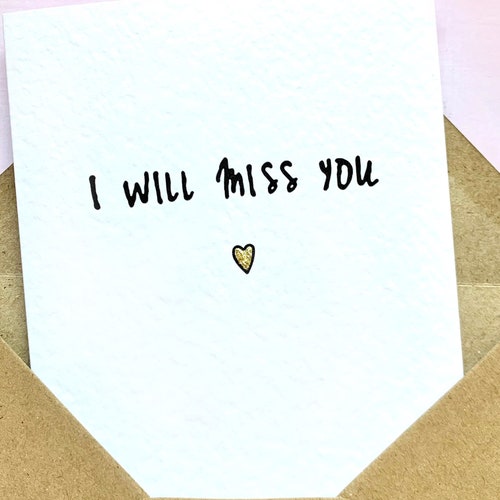 I WILL MISS YOU